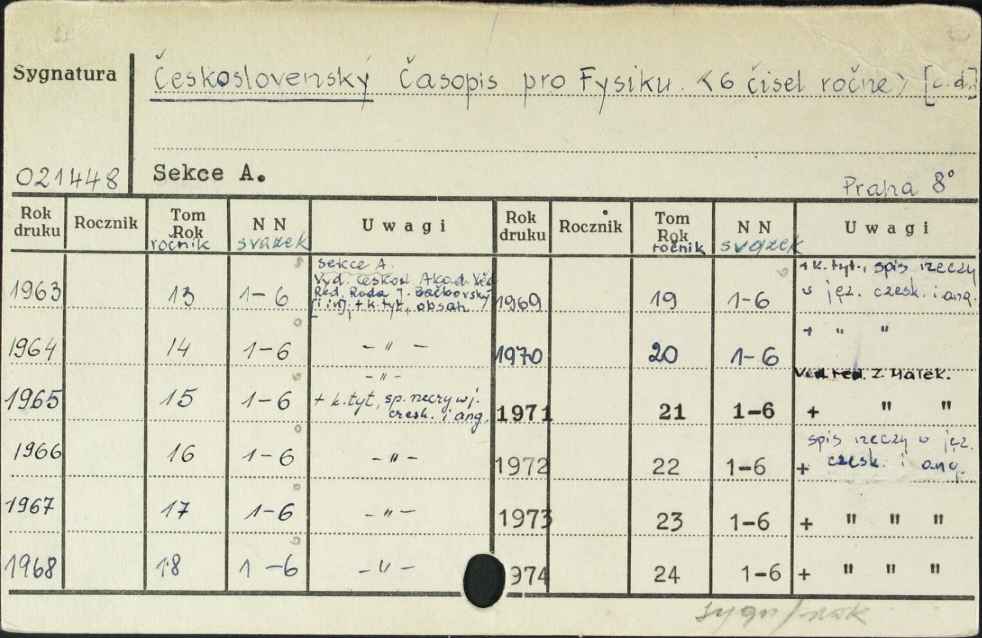 Sygnatura Československý Časopis pro Fysiku. <6 čisel ročne> [c.d.]
021448 Sekce A.
Praha 8°
Rok druku Rocznik Tom Rok ročnik NN svazek Uwagi Rok druku Rocznik Tom Rok ročnik NN svazek Uwagi
1963 13 1-6 Sekce A. Vyd. českosl. Akad. Věd Red. Rada J. Bačkovský [i in], + k. tyt., obsah 1969 19 1-6 + k. tyt., spis rzeczy w jęz. czesk. i ang.
1964 14 1-6 -"- 1970 20 1-6 + " "
1965 15 1-6 -"- + k. tyt, sp. rzeczy w j. czesk. i ang. 1971 21 1-6 Ved. red. Z. Malek. + " "
1966 16 1-6 -"- 1972 22 1-6 + spis rzeczy w jęz. czesk. i ang.
1967 17 1-6 -"- 1973 23 1-6 + " " "
1968 18 1-6 -"- 974 24 1-6 + " " "